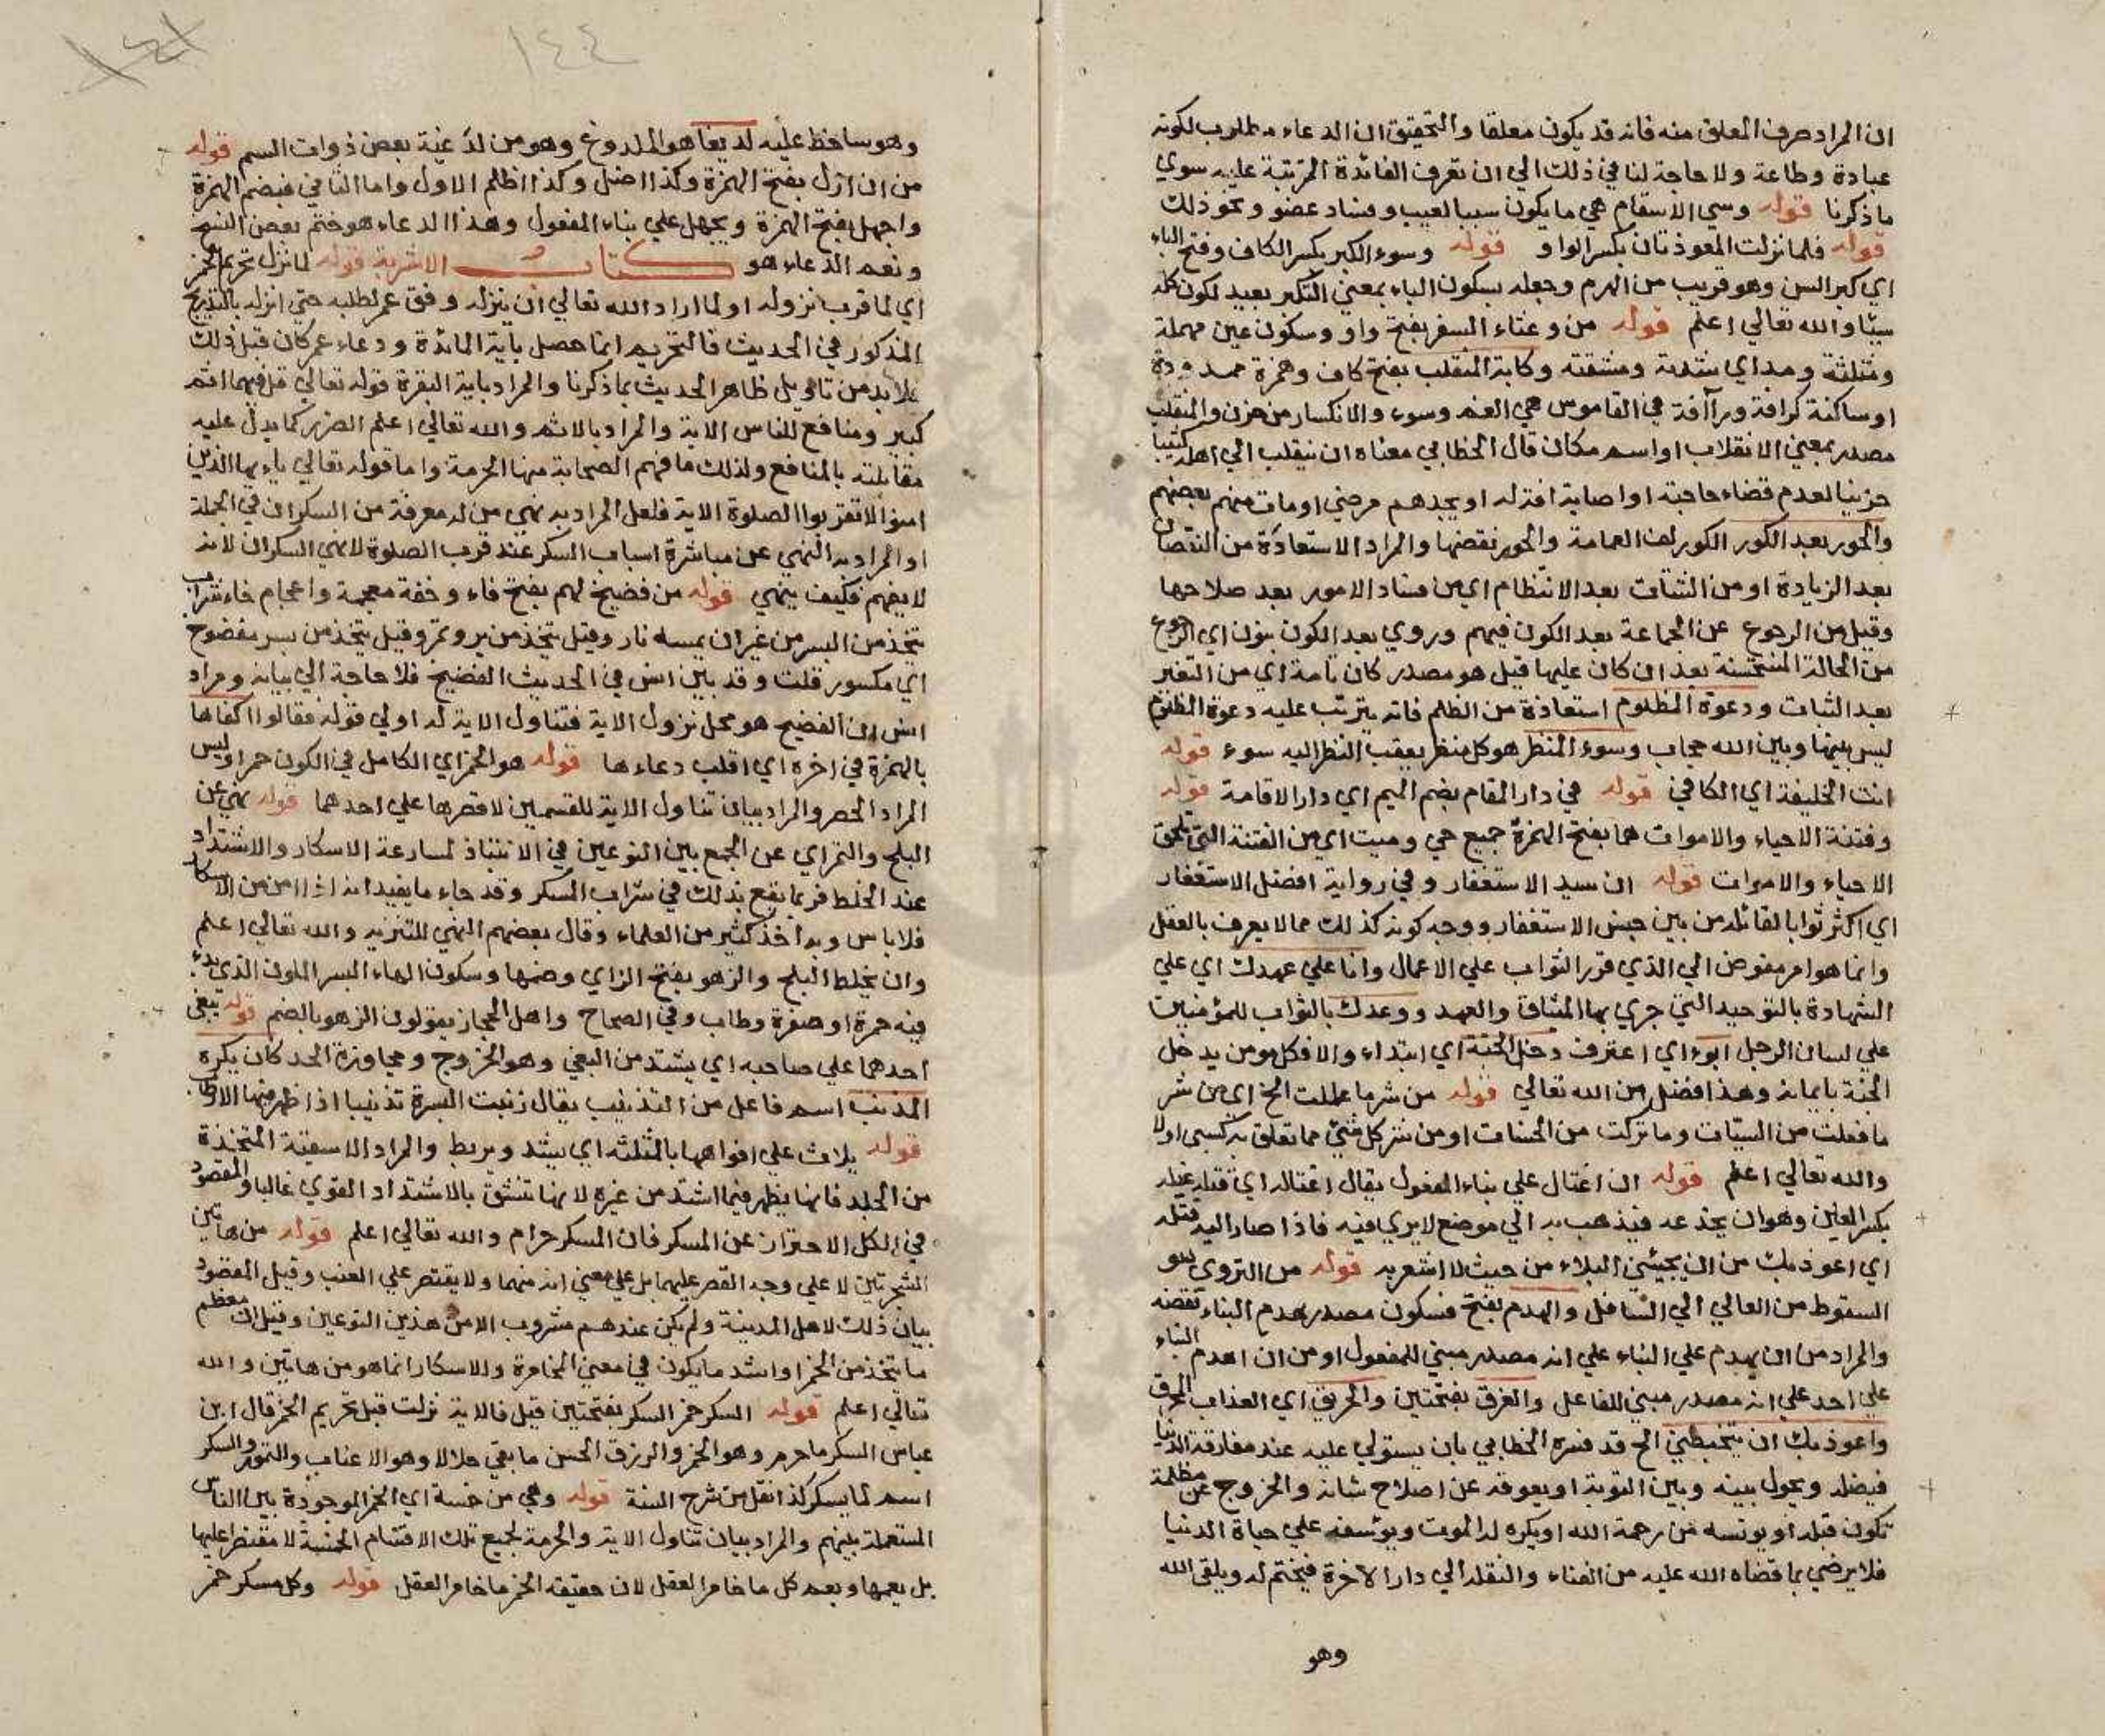 ان المراد صرف المعلق منه فانه قد يكون معلقا والتحقيق ان الدعاء مطلوب لكونه
عبادة وطاعة ولا حاجة لنا في ذلك الي ان نعرف الفائدة المترتبة عليه سوي
ما ذكرنا قوله وسي الاسقام هي ما يكون سببا لعيب وفساد عضو ونحو ذلك
قوله فلما نزلت المعوذتان بكسر الواو قوله وسوء الكبر بكسر الكاف وفتح الباء
اي كبر السن وهو قريب من الهرم وجعله بسكون الباء بمعني التكبر بعيد لكون كله
سيئا والله تعالي اعلم قوله من وعثاء السفر بفتح واو وسكون عين مهملة
ومثلثة ومد اي شدته ومشقته وكابة المنقلب بفتح كاف وهمزة ممدودة
او ساكنة كرافة ورآأفة في القاموس هي الغم وسوء والانكسار من حزن والمنقلب
مصدر بمعني الانقلاب او اسم مكان قال الخطابي معناه ان ينقلب الي اهله كئيبا
حزينا لعدم قضاء حاجته او اصابة افة له او يجدهم مرضي او مات منهم بعضهم
والحور بعد الكور الكور لف العمامة والحور نقضها والمراد الاستعاذة من النقصان
بعد الزيادة او من الشتات بعد الانتظام اي من فساد الامور بعد صلاحها
وقيل من الرجوع عن الجماعة بعد الكون فيهم وروي بعد الكون بنون اي الرجوع
من الحالة المستحسنة بعد ان كان عليها قيل هو مصدر كان تامة اي من التغير
بعد الثبات ودعوة المظلوم استعاذة من الظلم فانه يترتب عليه دعوة المظلوم
ليس بينها وبين الله حجاب وسوء المنظر هو كل منظر يعقب النظر اليه سوء قوله
انت الخليفة اي الكافي قوله في دار المقام بضم الميم اي دار الاقامة قوله
وفتنة الاحياء والاموات هما بفتح الهمزة جمع حي وميت اي من الفتنة التي تلحق
الاحياء والاموات قوله ان سيد الاستغفار وفي رواية افضل الاستغفار
اي اكثر ثوابا لقائله من بين جنس الاستغفار ووجه كونه كذلك مما لا يعرف بالعقل
وانما هو امر مفوض الي الذي قرر الثواب علي الاعمال وانا علي عهدك اي علي
الشهادة بالتوحيد التي جري بها الميثاق والعهد ووعدك بالثواب للمؤمنين
علي لسان الرجل ابوء اي اعترف دخل الجنة اي ابتداء والا فكل مومن يدخل
الجنة بايمانه وهذا افضل من الله تعالي قوله من شر ما عملت الخ اي من شر
ما فعلت من السيات وما تركت من الحسنات او من شر كل شيء مما تعلق به كسبي اولا
والله تعالي اعلم قوله ان اغتال علي بناء المفعول يقال اغتاله اي قتله غيله
بكسر الغين وهو ان يخدعه فيذهب به الي موضع لا يري فيه فاذا صار اليه قتله
اي اعوذ بك من ان يجيئني البلاء من حيث لا اشعر به قوله من التروي هو
السقوط من العالي الي السافل والهدم بفتح فسكون مصدر هدم البناء نقضه
والمراد من ان يهدم علي البناء علي انه مصدر مبني للمفعول او من ان اهدم البناء
علي احد علي انه مصدر مبني للفاعل والغرق بفتحتين والحريق اي العذاب المحرق
واعوذ بك ان يتخبطني الخ قد فسره الخطابي بان يستولي عليه عند مفارقة الدنيا
فيضله ويحول بينه وبين التوبة او يعوقه عن اصلاح شانه والخروج عن مظلمة
تكون قبله او يونسه من رحمة الله او يكره له الموت ويوسفه علي حياة الدنيا
فلا يرضي بما قضاه الله عليه من الفناء والنقلة الي دار الاخرة فيختم له ويلقي الله
وهو
١٤٤
وهو ساخط عليه لديغا هو الملدوغ وهو من لدغته بعض ذوات السم قوله
من ان ازل بفتح الهمزة وكذا اضل وكذا اظلم الاول واما الثاني فبضم الهمزة
واجهل بفتح الهمزة ويجهل علي بناء المفعول وهذا الدعاء هو ختم بعض النسخ
ونعم الدعاء هو كتاب الاشربة قوله لما نزل تحريم الخمر
اي لما قرب نزوله او لما اراد الله تعالي ان ينزله وفق عمر لطلبه حتي انزله بالتدريج
المذكور في الحديث فالتحريم انما حصل باية المائدة ودعاء عمر كان قبل ذلك
فلا بد من تاويل ظاهر الحديث بما ذكرنا والمراد باية البقرة قوله تعالي قل فيهما اثم
كبير ومنافع للناس الاية والمراد بالاثم والله تعالي اعلم الضرر كما يدل عليه
مقابلته بالمنافع ولذلك ما فهم الصحابة منها الحرمة واما قوله تعالي ياءيها الذين
امنوا لا تقربوا الصلوة الاية فلعل المراد به نهي من له معرفة من السكران في الجملة
او المراد به النهي عن مباشرة اسباب السكر عند قرب الصلوة لا نهي السكران لانه
لا يفهم فكيف ينهي قوله من فضيخ لهم بفتح فاء وخفة معجمة واعجام خاء شراب
يتخذ من البسر من غير ان يمسه نار وقيل يتخذ من بر وتمر وقيل يتخذ من بسر مفضوح
اي مكسور قلت وقد بين انس في الحديث الفضيخ فلا حاجة الي بيانه ومراد
انس ان الفضيخ هو محل نزول الاية فتناول الاية له اولي قوله فقالوا اكفاها
بالهمزة في اخره اي اقلب دعاءها قوله هو الخمر اي الكامل في الكون خمرا وليس
المراد الحصر والمراد بيان تناول الاية للقسمين لا قصرها علي احدهما قوله نهي عن
البلح والتمر اي عن الجمع بين النوعين في الانتباذ لمسارعة الاسكار والاشتداد
عند الخلط فربما يقع بذلك في شراب المسكر وقد جاء ما يفيد انه اذا امن من الاسكار
فلا باس وبه اخذ كثير من العلماء وقال بعضهم النهي للتنزيه والله تعالي اعلم
وان يخلط البلح والزهو بفتح الزاي وضمها وسكون الهاء البسر الملون الذي بدء
فيه حمرة او صفرة وطاب وفي الصحاح واهل الحجاز يقولون الزهو بالضم قوله يبغي
احدهما علي صاحبه اي يشتد من البغي وهو الخروج ومجاوزة الحد كان يكره
المذنب اسم فاعل من التذنيب يقال ذنبت البسرة تذنيبا اذا ظهر فيها الارطاب
قوله يلاث علي افواهها بالمثلثه اي يشد ويربط والمراد الاسقية المتخذة
من الجلد فانها يظهر فيها اشتد من غيره لانها تنشق بالاشتداد القوي غالبا والمقصود
في الكل الاحتراز عن المسكر فان المسكر حرام والله تعالي اعلم قوله من هاتين
الشجرتين لا علي وجه القصر عليهما بل علي معني انه منهما ولا يقتصر علي العنب وقيل المقصود
بيان ذلك لاهل المدينة ولم يكن عندهم مشروب الا من هذين النوعين وقيل ان معظم
ما يتخذ من الخمر او اشد ما يكون في معني المخامرة والاسكار انما هو من هاتين والله
تعالي اعلم قوله السكر خمر السكر بفتحتين قيل فالاية نزلت قبل تحريم الخمر قال ابن
عباس السكر ما حرم وهو الخمر والرزق الحسن ما بقي حلالا وهو الاعناب والتمور والسكر
اسم لما يسكر كذا نقل من شرح السنة قوله وهي من خمسة اي الخمر الموجودة بين الناس
المستعملة بينهم والمراد بيان تناول الاية والحرمة لجميع تلك الاقسام الخمسة لا مقتصرا عليها
بل يعمها ويعم كل ما خامر العقل لان حقيقة الخمر ما خامر العقل قوله وكل مسكر خمر